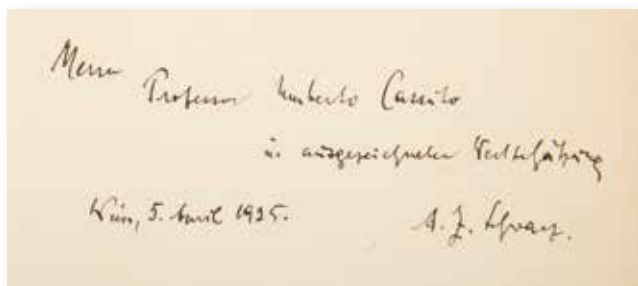 Herrn
Professor Umberto Cassuto
in ausgezeichneter Wertschätzung
Wien, 5. April 1925.
A. Z. Schwarz.